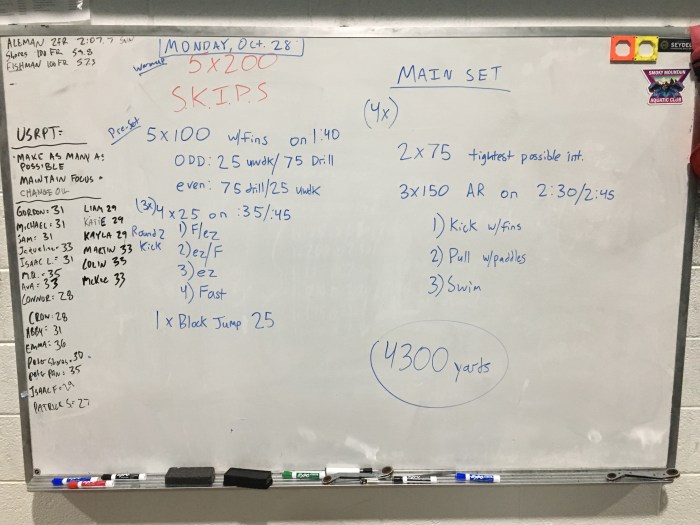 ALEMAN 2FR 2:07.
Shores 100 FR 59.8
FISHMAN 100 FR 52.5
MONDAY, Oct. 28
Warmup
5x200
S.K.I.P.S
MAIN SET
(4x)
2x75 tightest possible int.
3x150 AR on 2:30/2:45
1) Kick w/fins
2) Pull w/paddles
3) Swim
4300 yards
Pre-Set
5x100 w/fins on 1:40
ODD: 25 uwdk/75 Drill
even: 75 drill/25 uwdk
(3x) 4x25 on :35/:45
Round 2
Kick
1) F/ez
2) ez/F
3) ez
4) Fast
1x Block Jump 25
USRPT=
-MAKE AS MANY AS
POSSIBLE
MAINTAIN FOCUS
CHANGE OIL
GORDON: 31
MICHAEL: 31
SAM: 31
Jacqueline: 33
ISAAC L: 31
M.D.: 35
AVA: 33
CONNOR: 28
LIAM 29
KATIE 29
KAYLA 29
MARTIN 33
COLIN 35
McKee 33
CROW: 28
ABBY: 31
EMMA: 30
PAN: 35
ISAAC F: 29
PATRICK S: 27
SEYDEL
SMOKY MOUNTAIN
AQUATIC CLUB
EXPO